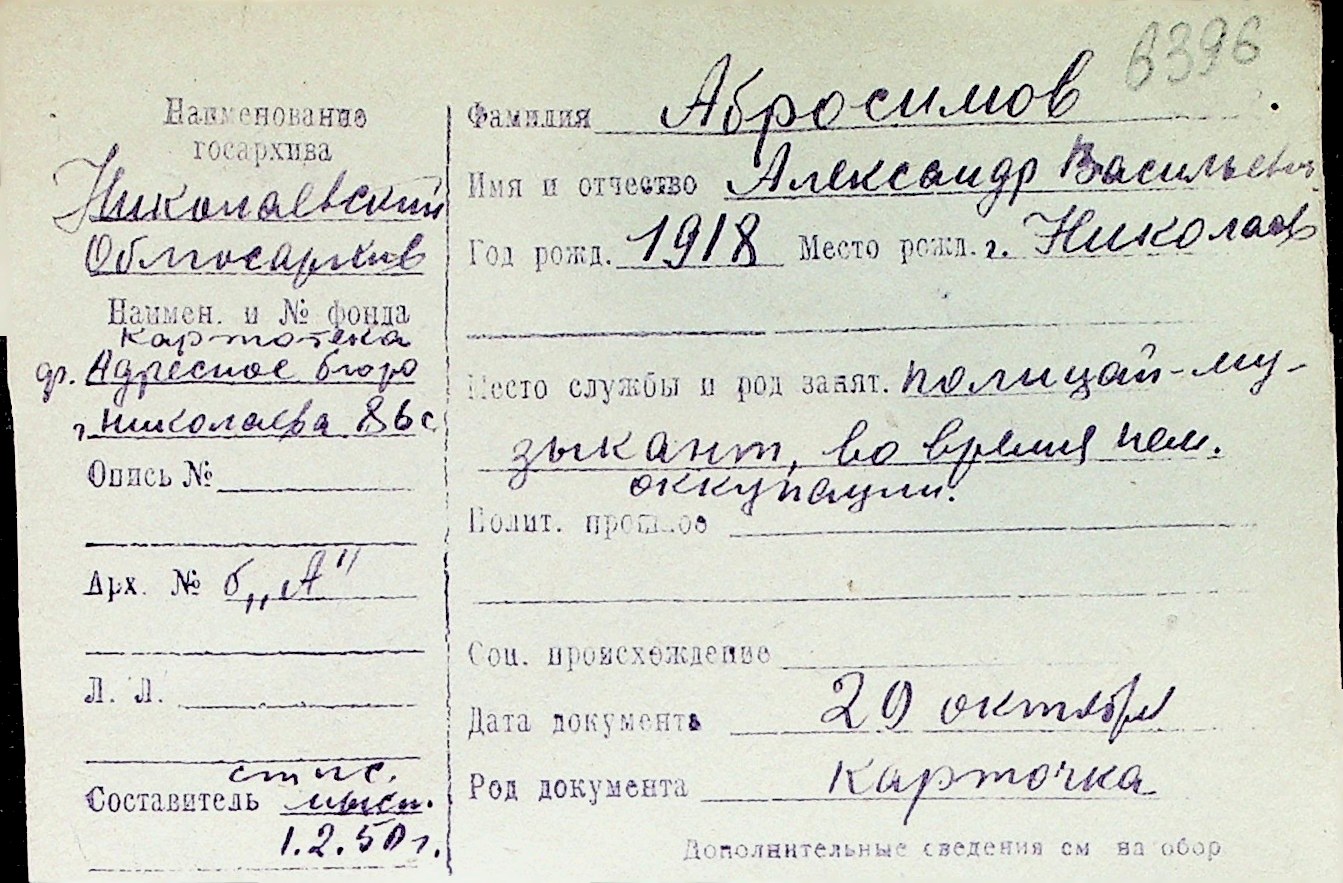 6396
Наименование
госархива
Николаевский
Облгосархив
Наимен. и № фонда
картотека
ф. Адресное бюро
г. Николаева 86 с
Опись №
Арх. № б „А"
Л. Л.
Составитель ст. н. с.
1.2.50 г.
Фамилия Абросимов
Имя и отчество Александр Васильевич
Год рожд. 1918 Место рожд. г. Николаев
Место службы и род занят. полицай-му-
зыкант, во время нем.
оккупации.
Полит. прошлое
Соц. происхождение
Дата документа 29 октября
Род документа карточка
Дополнительные сведения см на обор